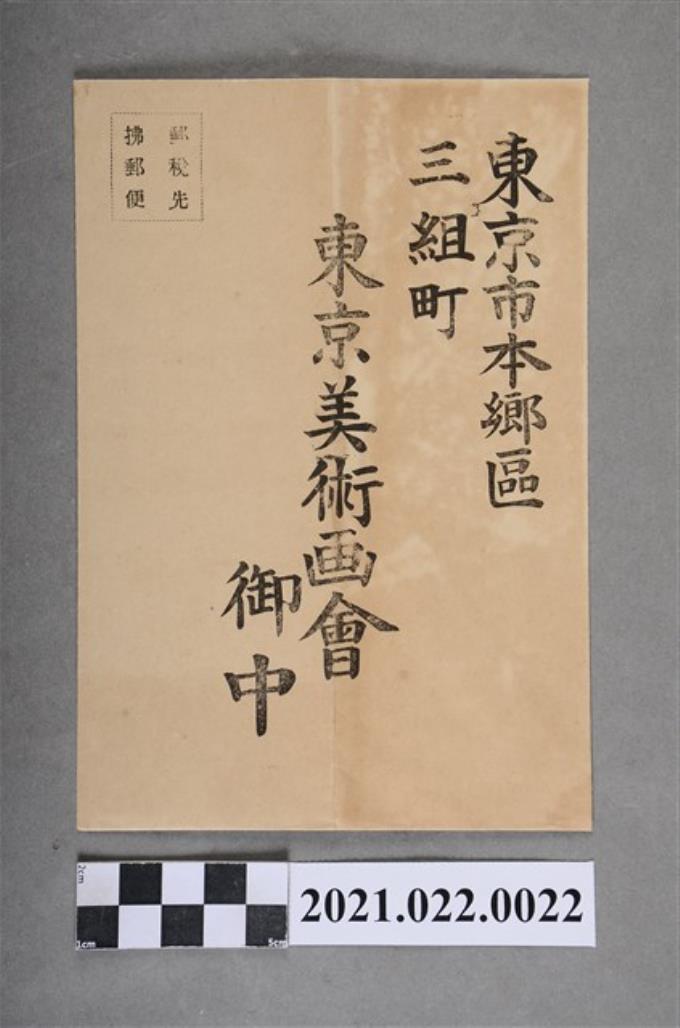 東京市本鄉區
三組町
東京美術画會
御中
郵税先
拂郵便
2cm
1cm
5cm
2021.022.0022